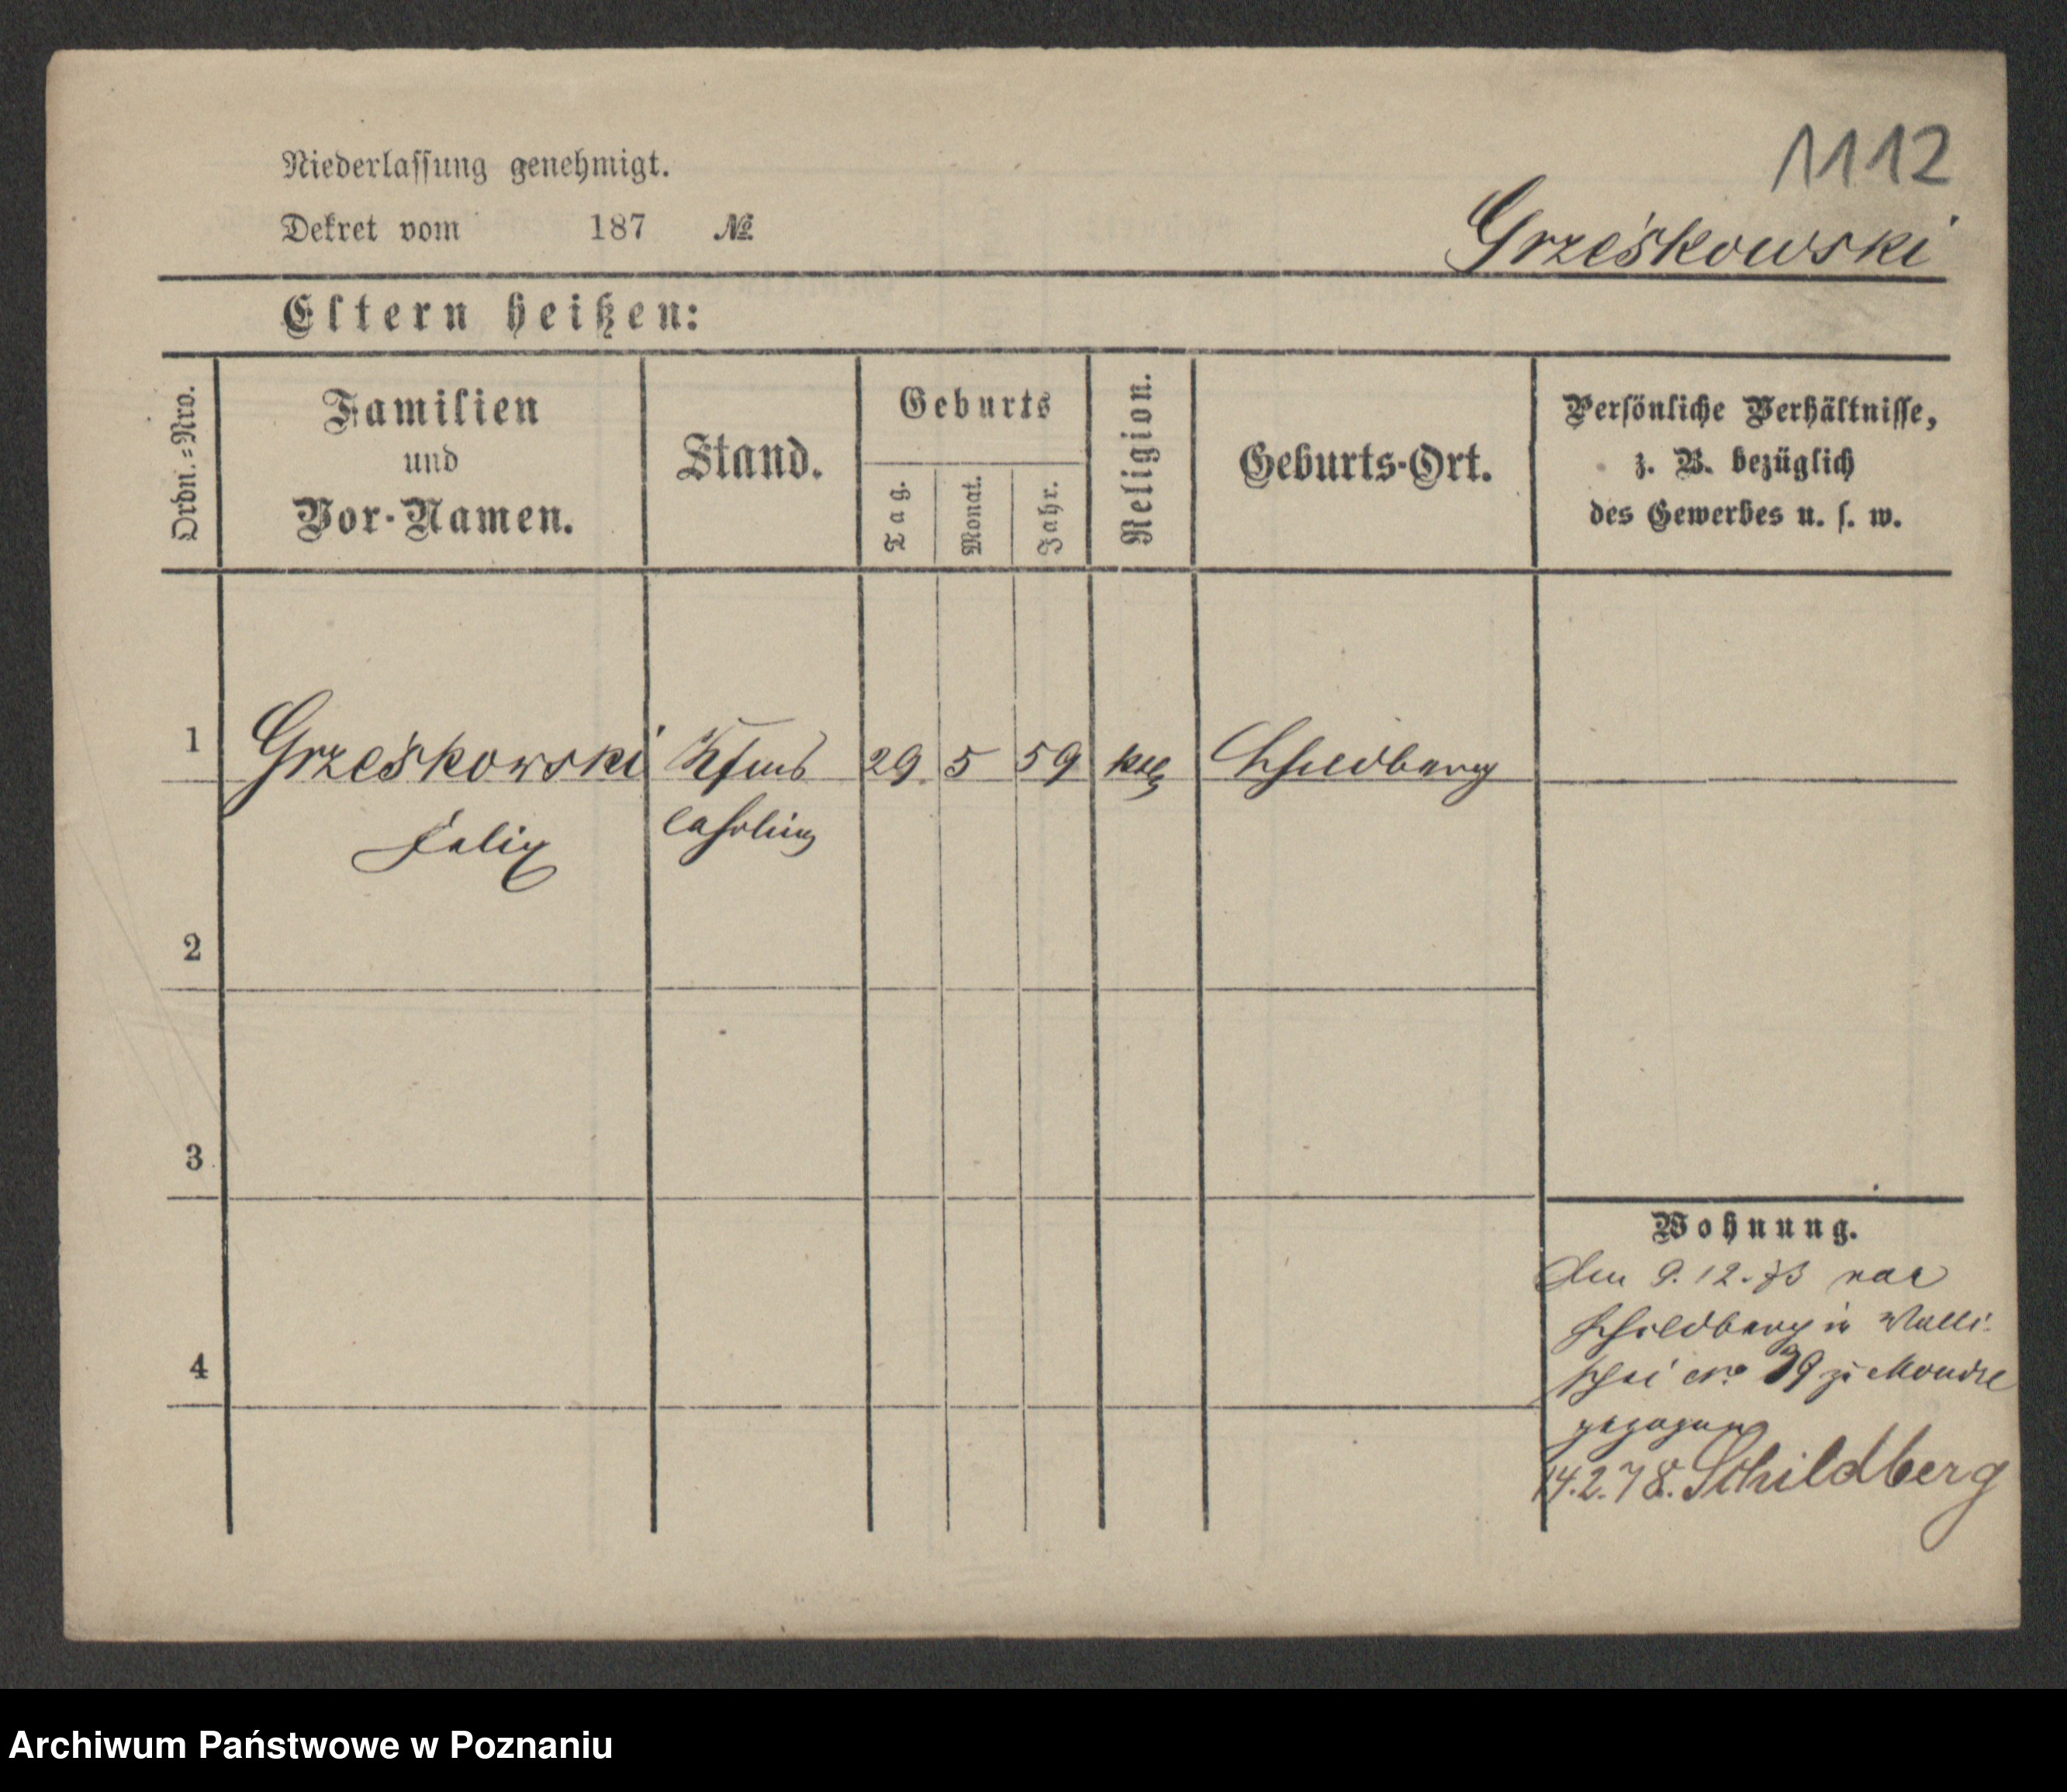 1112
Niederlassung genehmigt.
Dekret vom 187 №
Grześkowski
Eltern heißen:
Ordn.=Nro.
Familien
und
Vor-Namen.
Stand.
Geburts
Tag.
Monat.
Jahr.
Religion.
Geburts-Ort.
Persönliche Verhältnisse,
z. B. bezüglich
des Gewerbes u. s. w.
1 Grześkowski 29. 5 59 kth Schildberg
Felix Lehrling
2
3
4
Wohnung.
Den 9. 12. 73 von
Schildberg in Walli-
schei No 39 zu
gezogen
14.2.78. Schildberg
Archiwum Państwowe w Poznaniu